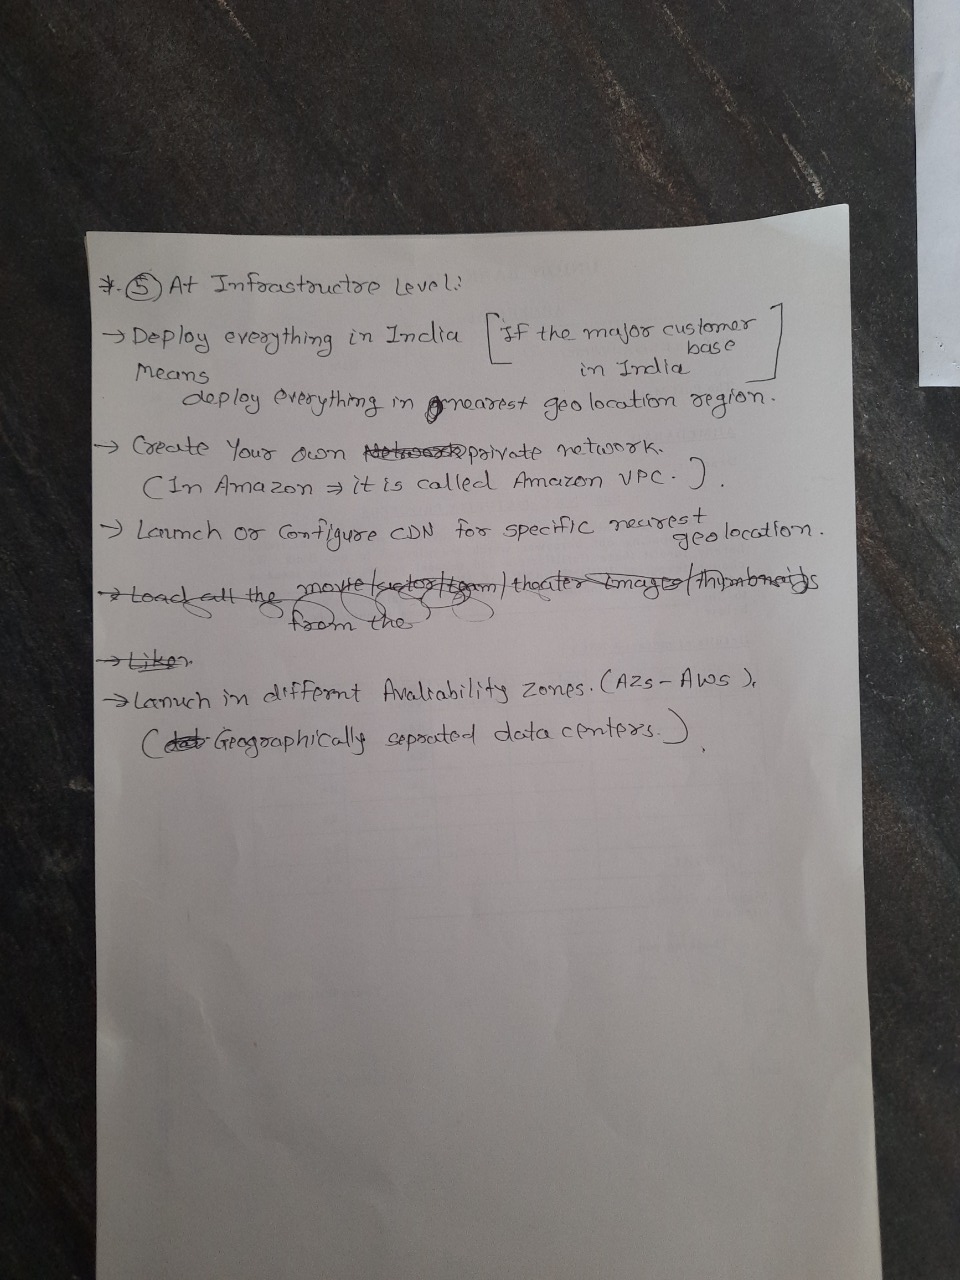 *. ⑤ At Infrastructre Level:
→ Deploy everything in India [If the major customer
base
in India]
Means
deploy everything in nearest geolocation region.
→ Create Your own Network private network.
(In Amazon ⇒ it is called Amazon VPC.).
→ Launch or Configure CDN for specific nearest
geolocation.
→ Load all the movie/actor/team/theater images/thumbnails
from the
→ Like
→ Lanuch in differnt Avaliability zones. (AZs - AWS).
(dat Geographically seprated data centers.).